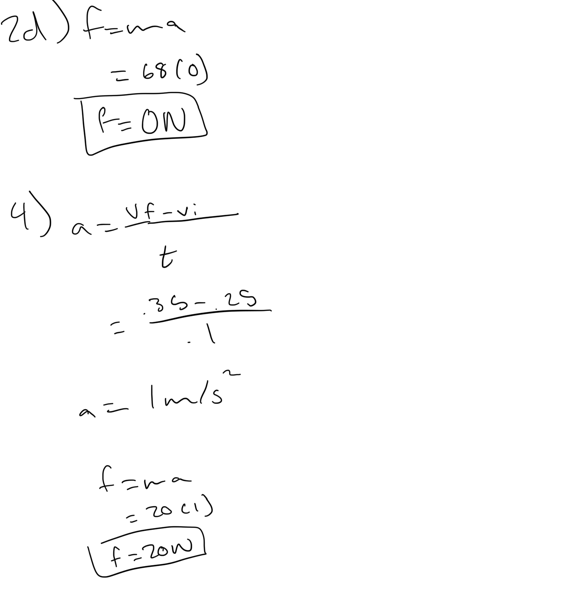 2d) f=ma
= 68(0)
f=0N
4) a= vf-vi
t
= .35-.25
.1
a= 1m/s²
f=ma
=20(1)
f=20N